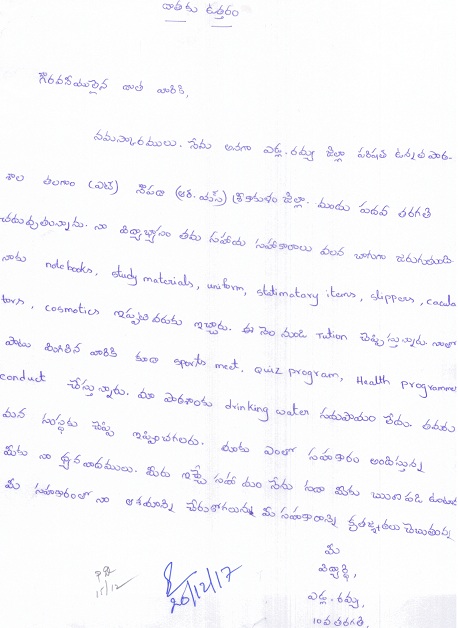 దాతకు ఉత్తరం
గౌరవనీయులైన దాత వారికి,
నమస్కారములు. నేను అనగా ఎర్ర. రమ్య జిల్లా పరిషత్ ఉన్నత పాఠ-
శాల తలగాం (ఎట్) నౌపడా (ఆర్.యస్) శ్రీకాకుళం జిల్లా. నుండి పదవ తరగతి
చదువుతున్నాను. నా విద్యాభ్యాసం తమ సహాయ సహకారాలు వలన బాగుగా జరుగుతుంది
నాకు notebooks, study materials, uniform, statimatory items, slippers, cacula
tors, cosmotics ఇప్పటివరకు ఇచ్చారు. ఈ నెల నుండి Tution చెప్పిస్తున్నారు. నాతో
పాటు మిగిలిన వారికి కూడా sports meet, Quiz program, Health programme
conduct చేస్తున్నారు. మా పాఠశాలకు drinking water సదుపాయం లేదు. తమరు
మన సంస్థకు చెప్పి ఇప్పించగలరు. మాకు ఎంతో సహకారం అందిస్తున్న
మీకు నా ధన్యవాదములు. మీరు ఇచ్చే సహాయం నేను సదా మీకు ఋణపడి ఉంటాను
మీ సహకారంతో నా ఆశయాన్ని చేరుకోగలను మీ సహకారాన్ని కృతజ్ఞతలు చెబుతున్న
మీ
విద్యార్థి,
ఎర్ర. రమ్య,
10వ తరగతి.
15/12
20/12/17